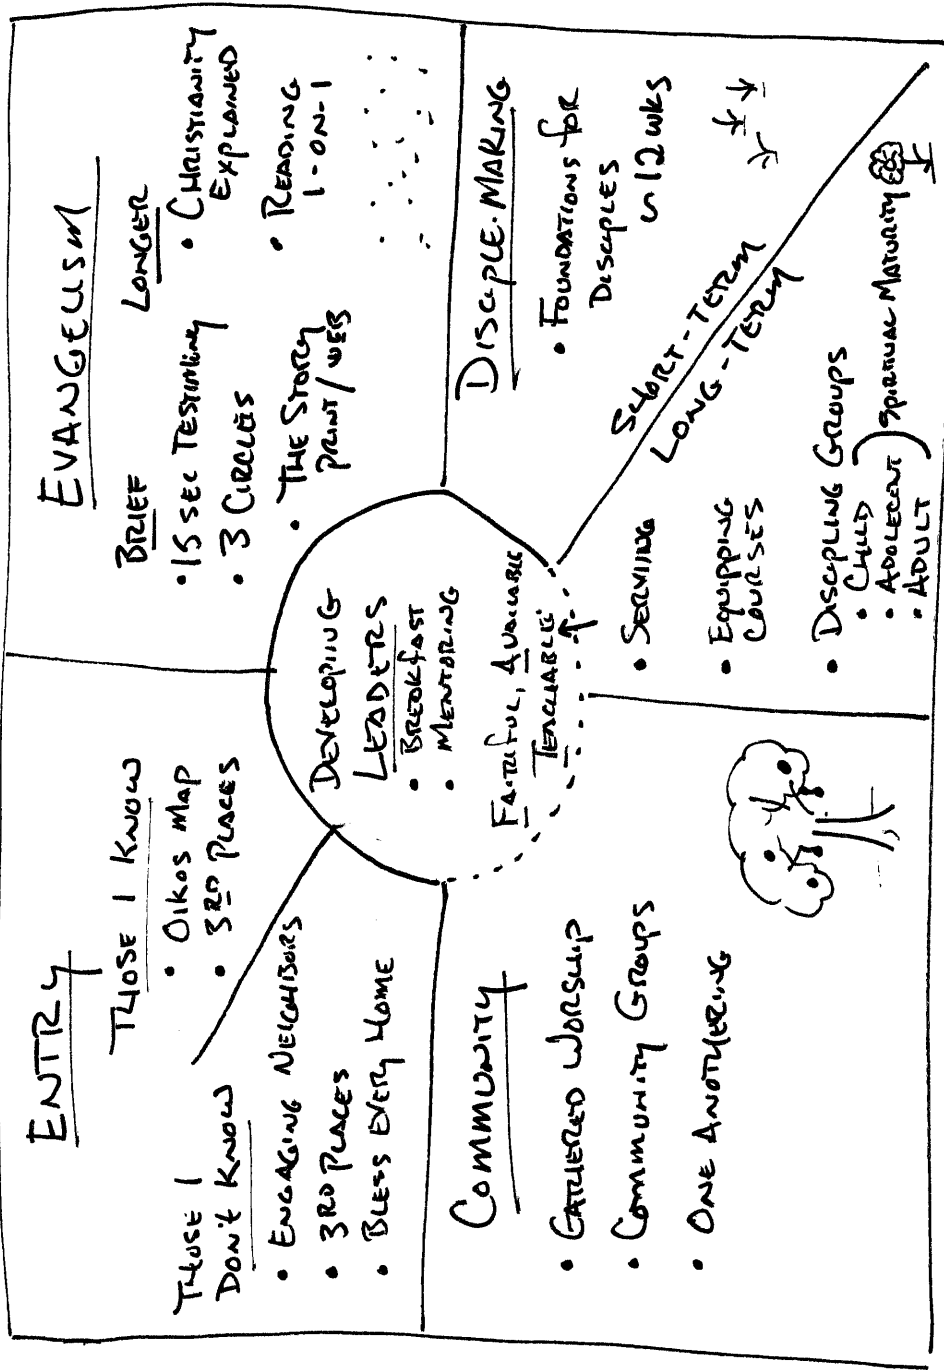 ENTRY
THOSE I
DON'T KNOW
• ENGAGING NEIGHBORS
• 3RD PLACES
• BLESS EVERY HOME
THOSE I KNOW
• OIKOS MAP
• 3RD PLACES
EVANGELISM
BRIEF
• 15 SEC TESTIMONY
• 3 CIRCLES
• THE STORY
PRINT/WEB
LONGER
• CHRISTIANITY
EXPLAINED
• READING
1-ON-1
DEVELOPING
LEADERS
• BREAKFAST
• MENTORING
FAITHFUL, AVAILABLE
TEACHABLE
COMMUNITY
• GATHERED WORSHIP
• COMMUNITY GROUPS
• ONE ANOTHERING
DISCIPLE-MAKING
• FOUNDATIONS FOR
DISCIPLES
~12 WKS
SHORT-TERM
LONG-TERM
• SERVING
• EQUIPPING
COURSES
• DISCIPLING GROUPS
• CHILD
• ADOLECENT
• ADULT
) SPIRITUAL MATURITY